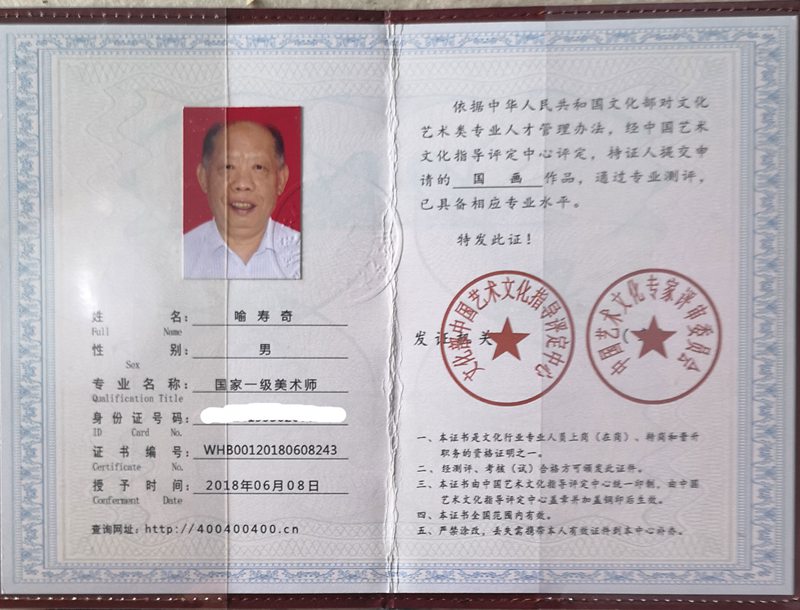 姓 名: 喻寿奇
Full Name
性 别: 男
Sex
专业名称: 国家一级美术师
Qualification Title
身份证号码:
ID Card No.
证书编号: WHB00120180608243
Certificate No.
授予时间: 2018年06月08日
Conferment Date
查询网址:http://400400400.cn
依据中华人民共和国文化部对文化
艺术类专业人才管理办法,经中国艺术
文化指导评定中心评定,持证人提交申
请的 国 画 作品,通过专业测评,
已具备相应专业水平。
特发此证!
发证机关
文化部中国艺术文化指导评定中心
中国艺术文化专家评审委员会
一、本证书是文化行业专业人员上岗(在岗)、转岗和晋升
职务的资格证明之一。
二、经测评、考核(试)合格方可颁发此证件。
三、本证书由中国艺术文化指导评定中心统一印制,由中国
艺术文化指导评定中心盖章并加盖钢印后生效。
四、本证书全国范围内有效。
五、严禁涂改,丢失需携带本人有效证件到本中心补办。